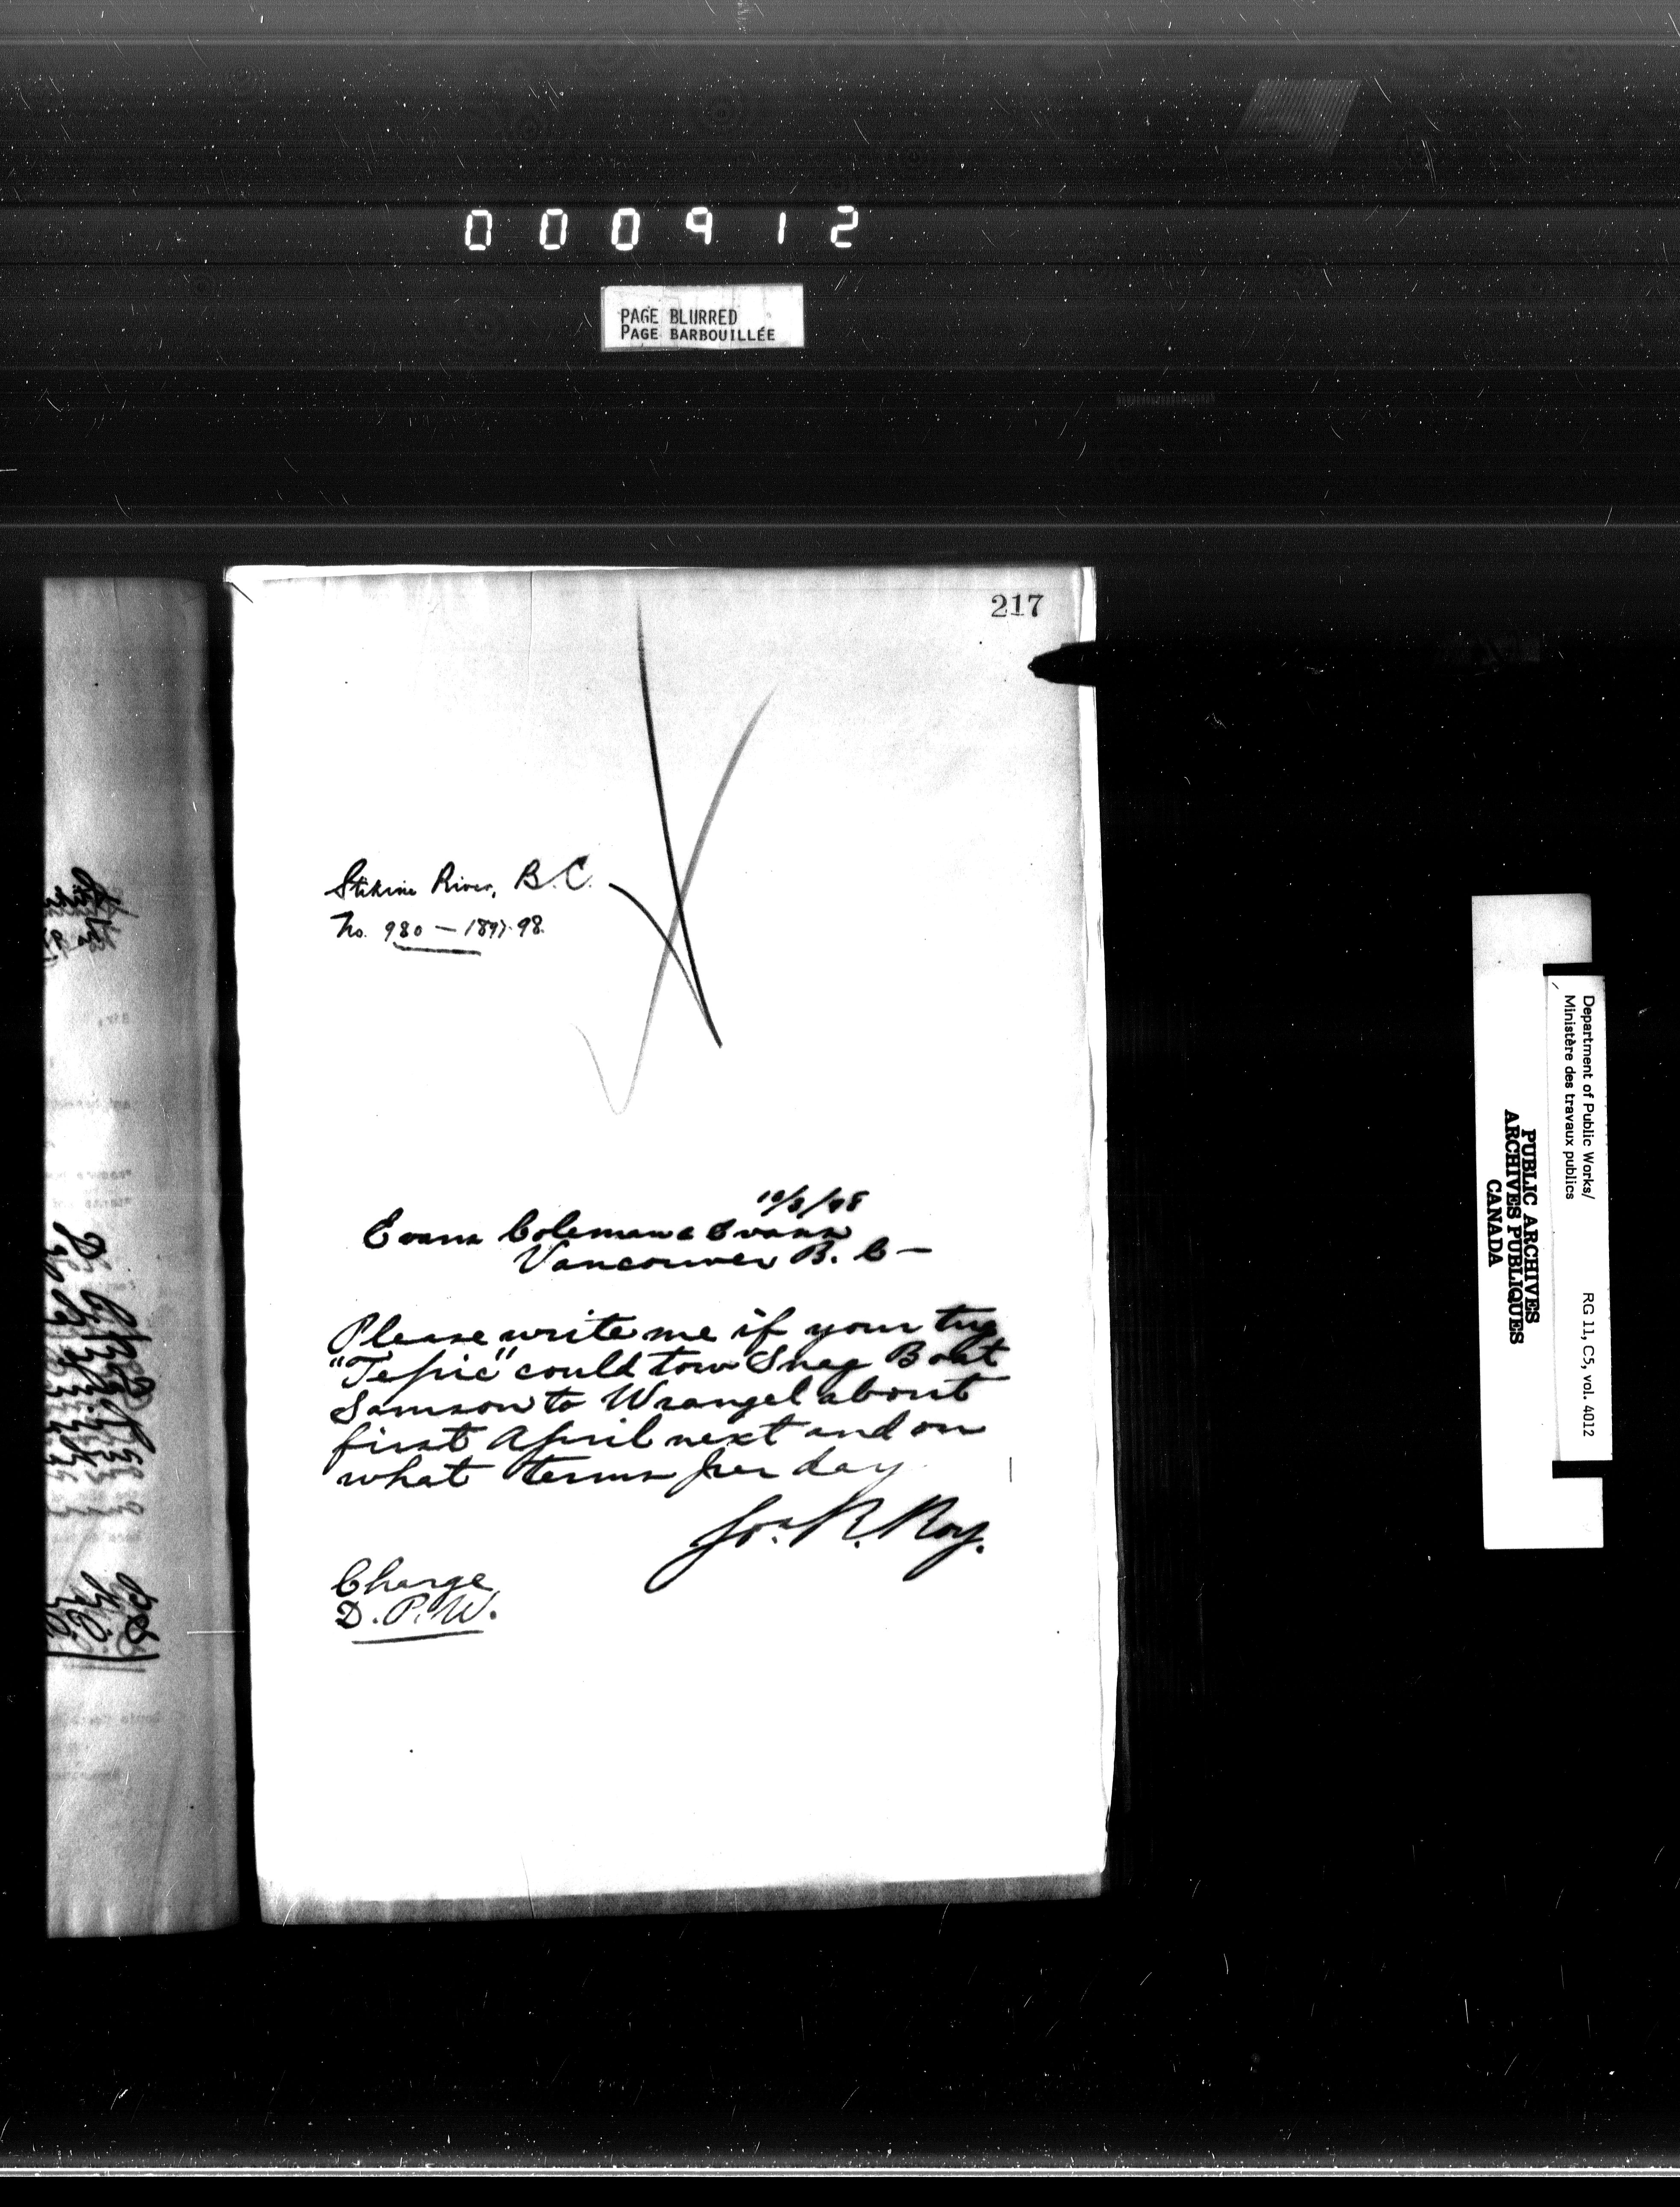 000912
PAGE BLURRED
PAGE BARBOUILLÉE
217
Stikine River, B.C.
No. 980 — 1897-98.
10/3/98
Evans Coleman & Evans
Vancouver B. C —
Please write me if your tug
"Tepic" could tow Snag Boat
Samson to Wrangel about
first April next and on
what terms per day
Jos. R. Roy.
Charge
D. P. W.
Department of Public Works/
Ministère des travaux publics
RG 11, C5, vol. 4012
PUBLIC ARCHIVES
ARCHIVES PUBLIQUES
CANADA